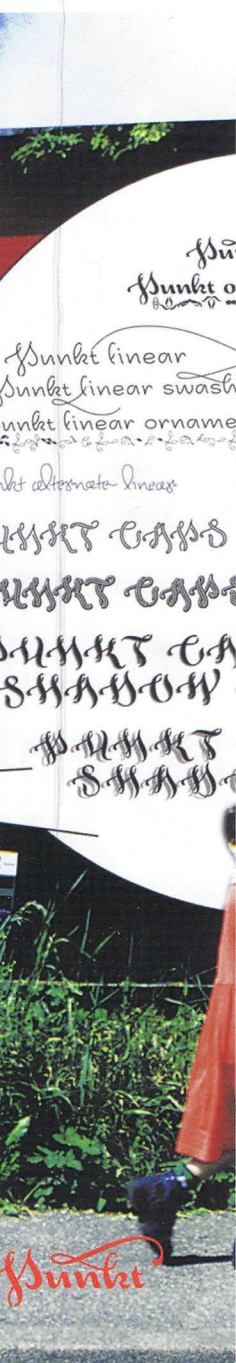 Punkt o
Punkt linear
Punkt linear swash
unkt linear orname
nkt alternate linear
UNKT CAPS
UNKT CAPS
PUNKT CA
SHADOW
PUNKT
SHADO
Punkt